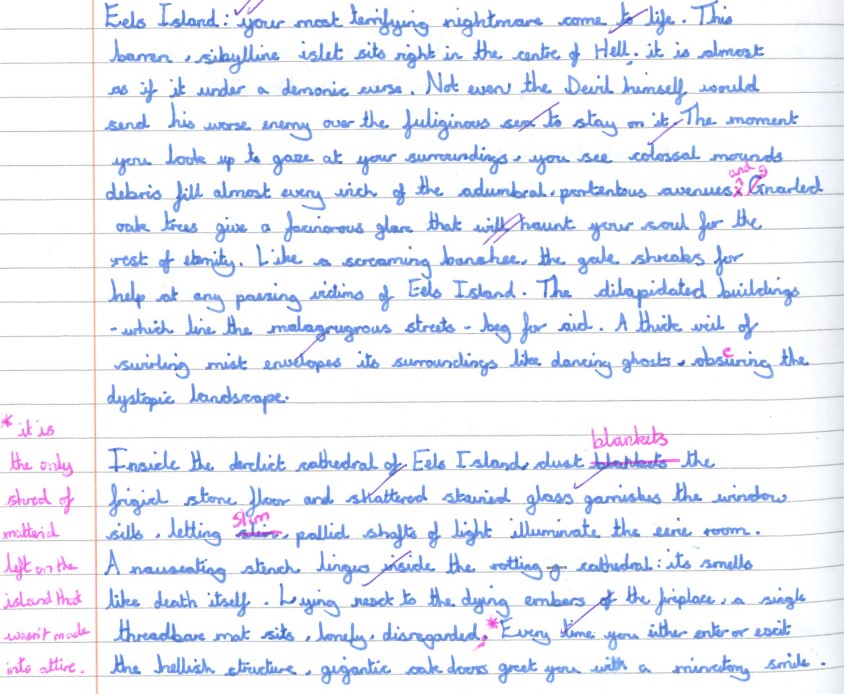 Eels Island: your most terrifying nightmare come to life. This
barren, sibylline islet sits right in the centre of Hell. it is almost
as if it under a demonic curse. Not even the Devil himself would
send his worse enemy over the fuliginous sea to stay on it. The moment
you look up to gaze at your surroundings, you see colossal mounds
and g
debris fill almost every inch of the adumbral, portentous avenues. Gnarled
oak trees give a facinorous glare that will haunt your soul for the
rest of eternity. Like a screaming banshee, the gale shreaks for
help at any passing victims of Eels Island. The dilapidated buildings
- which line the malagrugrous streets - beg for aid. A thick veil of
swirling mist envelopes its surroundings like dancing ghosts, obscuring the
dystopic landscape.
Inside the derelict cathedral of Eels Island, dust blankets the
blankets
frigid stone floor and shattered stained glass garnishes the window
sills, letting slim, pallid shafts of light illuminate the eerie room.
A nauseating stench lingers inside the rotting cathedral: its smells
like death itself. Lying next to the dying embers of the fireplace, a single
threadbare mat sits, lonely, disregarded.* Every time you either enter or exit
the hellish structure, gigantic oak doors greet you with a minatory smile.
* it is
the only
shred of
material
left on the
island that
wasn't made
into attire.